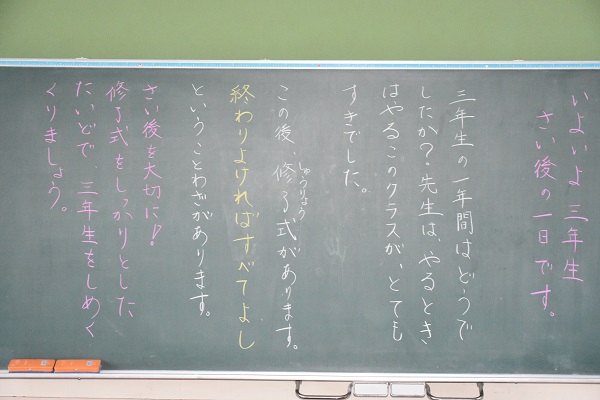 いよいよ三年生
さい後の一日です。
三年生の一年間はどうで
したか?先生は、やるとき
はやるこのクラスが、とても
すきでした。
この後、修了式があります。
しゅうりょう
終わりよければすべてよし
ということわざがあります。
さい後を大切に!
修了式をしっかりとした
たいどで、三年生をしめく
くりましょう。